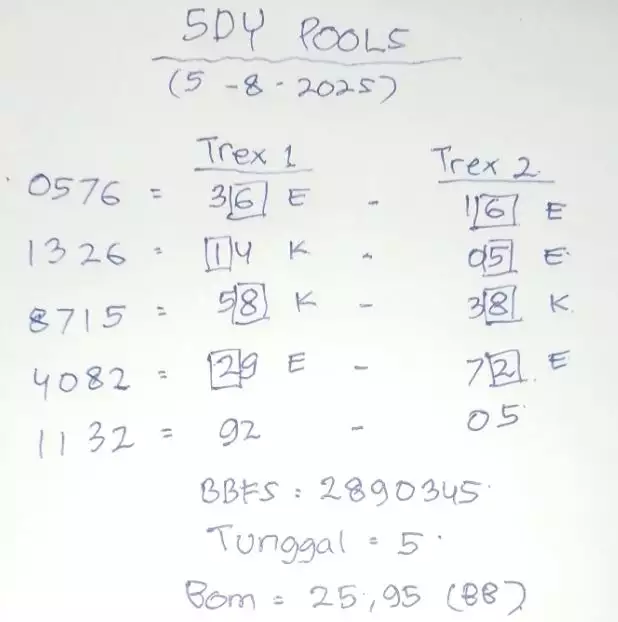 SDY POOLS
(5-8-2025)
Trex 1 Trex 2
0576 = 36 E - 16 E
1326 = 14 K - 05 E
8715 = 58 K - 38 K
4082 = 29 E - 72 E
1132 = 92 - 05
BBFS : 2890345
Tunggal = 5
Bom = 25,95 (BB)